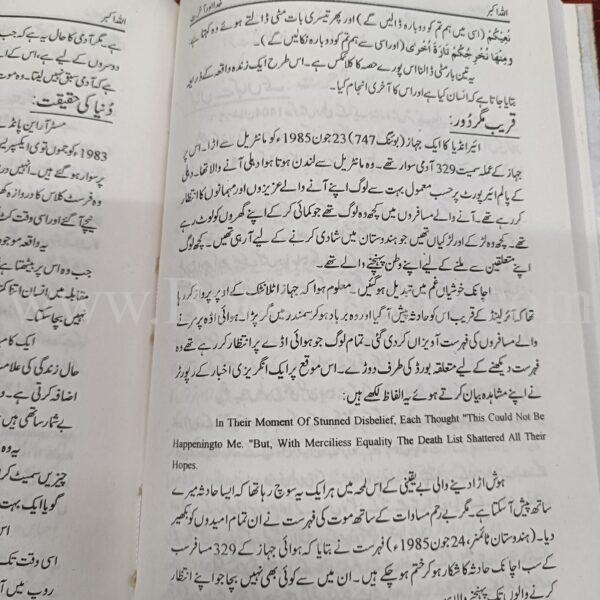 اللہ اکبر
نُعِیْدُکُمْ (اسی میں ہم تم کو دوبارہ ڈالیں گے) اور پھر تیسری بات مٹی ڈالتے ہوئے وہ کہتا ہے
وَمِنْھَا نُخْرِجُکُمْ تَارَۃً اُخْرٰی (اور اسی سے ہم تم کو دوبارہ نکالیں گے)
یہ تین بار مٹی ڈالنا اس پورے حصہ کا کلائمکس ہے۔ اس طرح ایک زندہ واقعہ کے ذریعہ
بتایا جاتا ہے کہ انسان کیا ہے اور اس کا آخری انجام کیا۔
قریب مگر دُور:
ائیر انڈیا کا ایک جہاز (بوئنگ 747) 23 جون 1985ء کو مانٹریل سے اڑا۔ اس پر
جہاز کے عملہ سمیت 329 آدمی سوار تھے۔ وہ مانٹریل سے لندن ہوتا ہوا دہلی آنے والا تھا۔ دہلی
کے پالم ائیر پورٹ پر حسب معمول بہت سے لوگ اپنے آنے والے عزیزوں اور مہمانوں کا انتظار
کر رہے تھے۔ آنے والے مسافروں میں کچھ وہ لوگ تھے جو کمائی کر کے اپنے گھروں کو لوٹ رہے
تھے۔ کچھ وہ لڑکے اور لڑکیاں تھیں جو ہندوستان میں شادی کرنے کے لیے آ رہی تھیں۔ کچھ لوگ
اپنے متعلقین سے ملنے کے لیے اپنے وطن پہنچنے والے تھے۔
اچانک خوشیاں غم میں تبدیل ہو گئیں۔ معلوم ہوا کہ جہاز اٹلانٹک کے اوپر پرواز کر رہا
تھا کہ آئرلینڈ کے قریب اس کو حادثہ پیش آ گیا اور وہ برباد ہو کر سمندر میں گر پڑا۔ ہوائی اڈہ پر مرنے
والے مسافروں کی فہرست آویزاں کر دی گئی۔ تمام لوگ جو ہوائی اڈے پر انتظار کر رہے تھے وہ
فہرست دیکھنے کے لیے متعلقہ بورڈ کی طرف دوڑے۔ اس موقع پر ایک انگریزی اخبار کے رپورٹر
نے اپنے مشاہدہ بیان کرتے ہوئے یہ الفاظ لکھے ہیں:
In Their Moment Of Stunned Disbelief, Each Thought "This Could Not Be
Happeningto Me. "But, With Merciless Equality The Death List Shattered All Their
Hopes.
ہوش اڑا دینے والی بے یقینی کے اس لمحہ میں ہر ایک یہ سوچ رہا تھا کہ ایسا حادثہ میرے
ساتھ پیش آ سکتا ہے۔ مگر بے رحم مساوات کے ساتھ موت کی فہرست نے ان تمام امیدوں کو بکھیر
دیا۔ (ہندوستان ٹائمز، 24 جون 1985ء) فہرست نے بتایا کہ ہوائی جہاز کے 329 مسافر سب
کے سب اچانک حادثہ کا شکار ہو کر ختم ہو چکے ہیں۔ ان میں سے کوئی بھی نہیں بچا جو اپنے انتظار
کرنے والوں تک پہنچنے والا
اللہ اکبر
ہے۔ مگر آدمی کا حال یہ ہے کہ جب
دوسروں کے لیے ہے، اس کے
ہے کہ آدمی سبق نہیں لیتا۔ وہ موت
دُنیا کی حقیقت:
مسٹر آر این پانڈے
1983 کو جموں توی ایکسپریس
پر سوار ہو گئے ہیں۔ انہیں در
وہ فرسٹ کلاس کا دروازہ
نیچے آ گئے اور اسی وقت کٹ
یہ واقعہ موجو
جب وہ اس پر بیٹھتا ہے
مقابلہ میں انسان اتنا کم
نہیں بچا سکتا۔
ایک کام
حال زندگی کی علا
اضافہ کرتی ہے۔
بے شمار ساتھی ہیں
یہ وہ
چیزیں سمیٹ کر
گویا ایک بہت
اس
اسی وقت تک
روپ میں آ